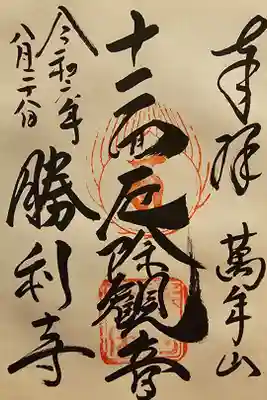 奉拝
萬年山
十一面厄除観音
勝利寺
令和六年
八月二十八日